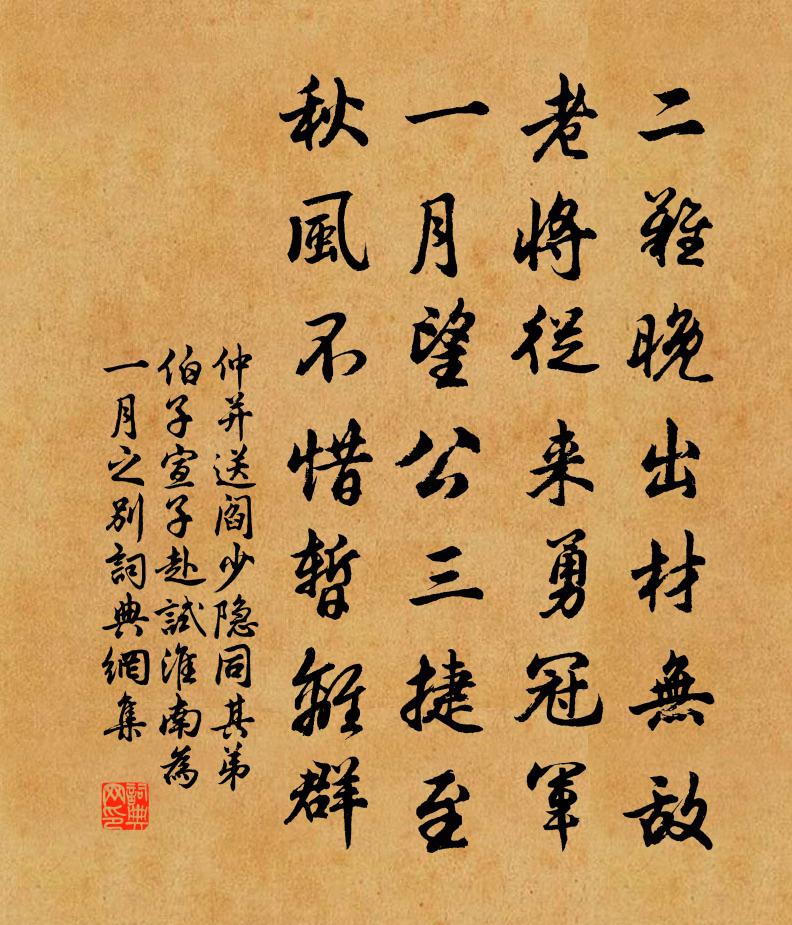 二難晚出材無敵
老將從来勇冠軍
一月望公三捷至
秋風不惜暫離群
仲并送閻少隐同其弟
伯子宣子赴試淮南為
一月之别詞典網集
詞典网印